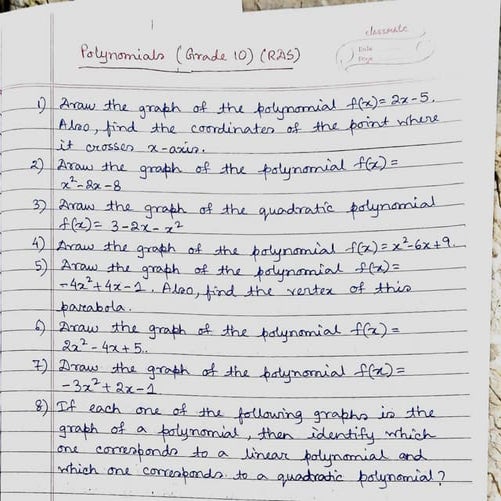 1
classmate
Date
Page
Polynomials (Grade 10) (RAS)
1) Draw the graph of the polynomial f(x)= 2x-5.
Also, find the coordinates of the point where
it crosses x-axis.
2) Draw the graph of the polynomial f(x)=
x²-2x-8
3) Draw the graph of the quadratic polynomial
f(x)= 3-2x-x²
4) Draw the graph of the polynomial f(x)=x²-6x+9.
5) Draw the graph of the polynomial f(x)=
-4x²+4x-1. Also, find the vertex of this
parabola.
6) Draw the graph of the polynomial f(x)=
2x²-4x+5..
7) Draw the graph of the polynomial f(x)=
-3x²+2x-1
8) If each one of the following graphs is the
graph of a polynomial, then identify which
one corresponds to a linear polynomial and
which one corresponds to a quadratic polynomial?